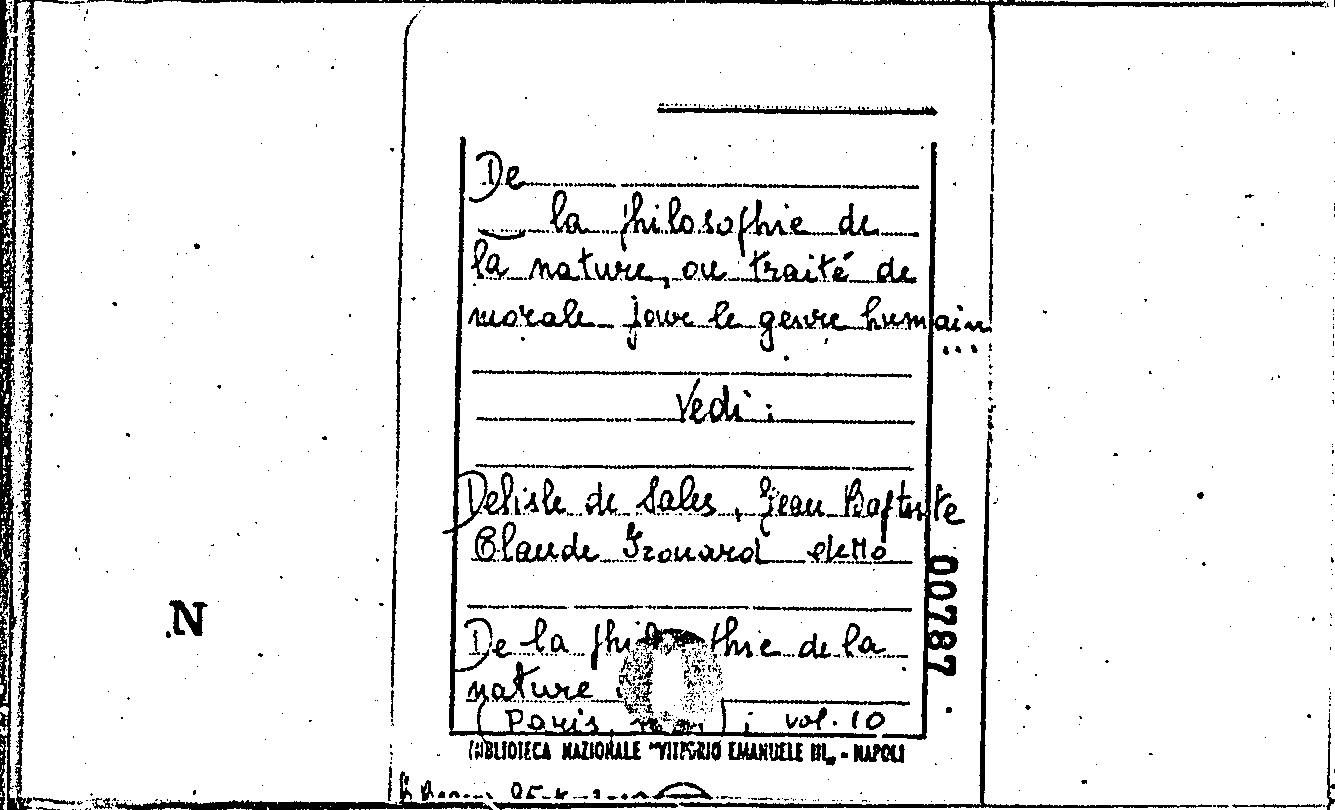 De
la philosophie de
la nature, ou traité de
morale pour le genre humain
...
Vedi:
Delisle de Sales, Jean Baptiste
Claude Izouard detto
00787
N
De la philosophie de la
nature
(Paris, ) ; vol. 10
BIBLIOTECA NAZIONALE "VITTORIO EMANUELE III" - NAPOLI